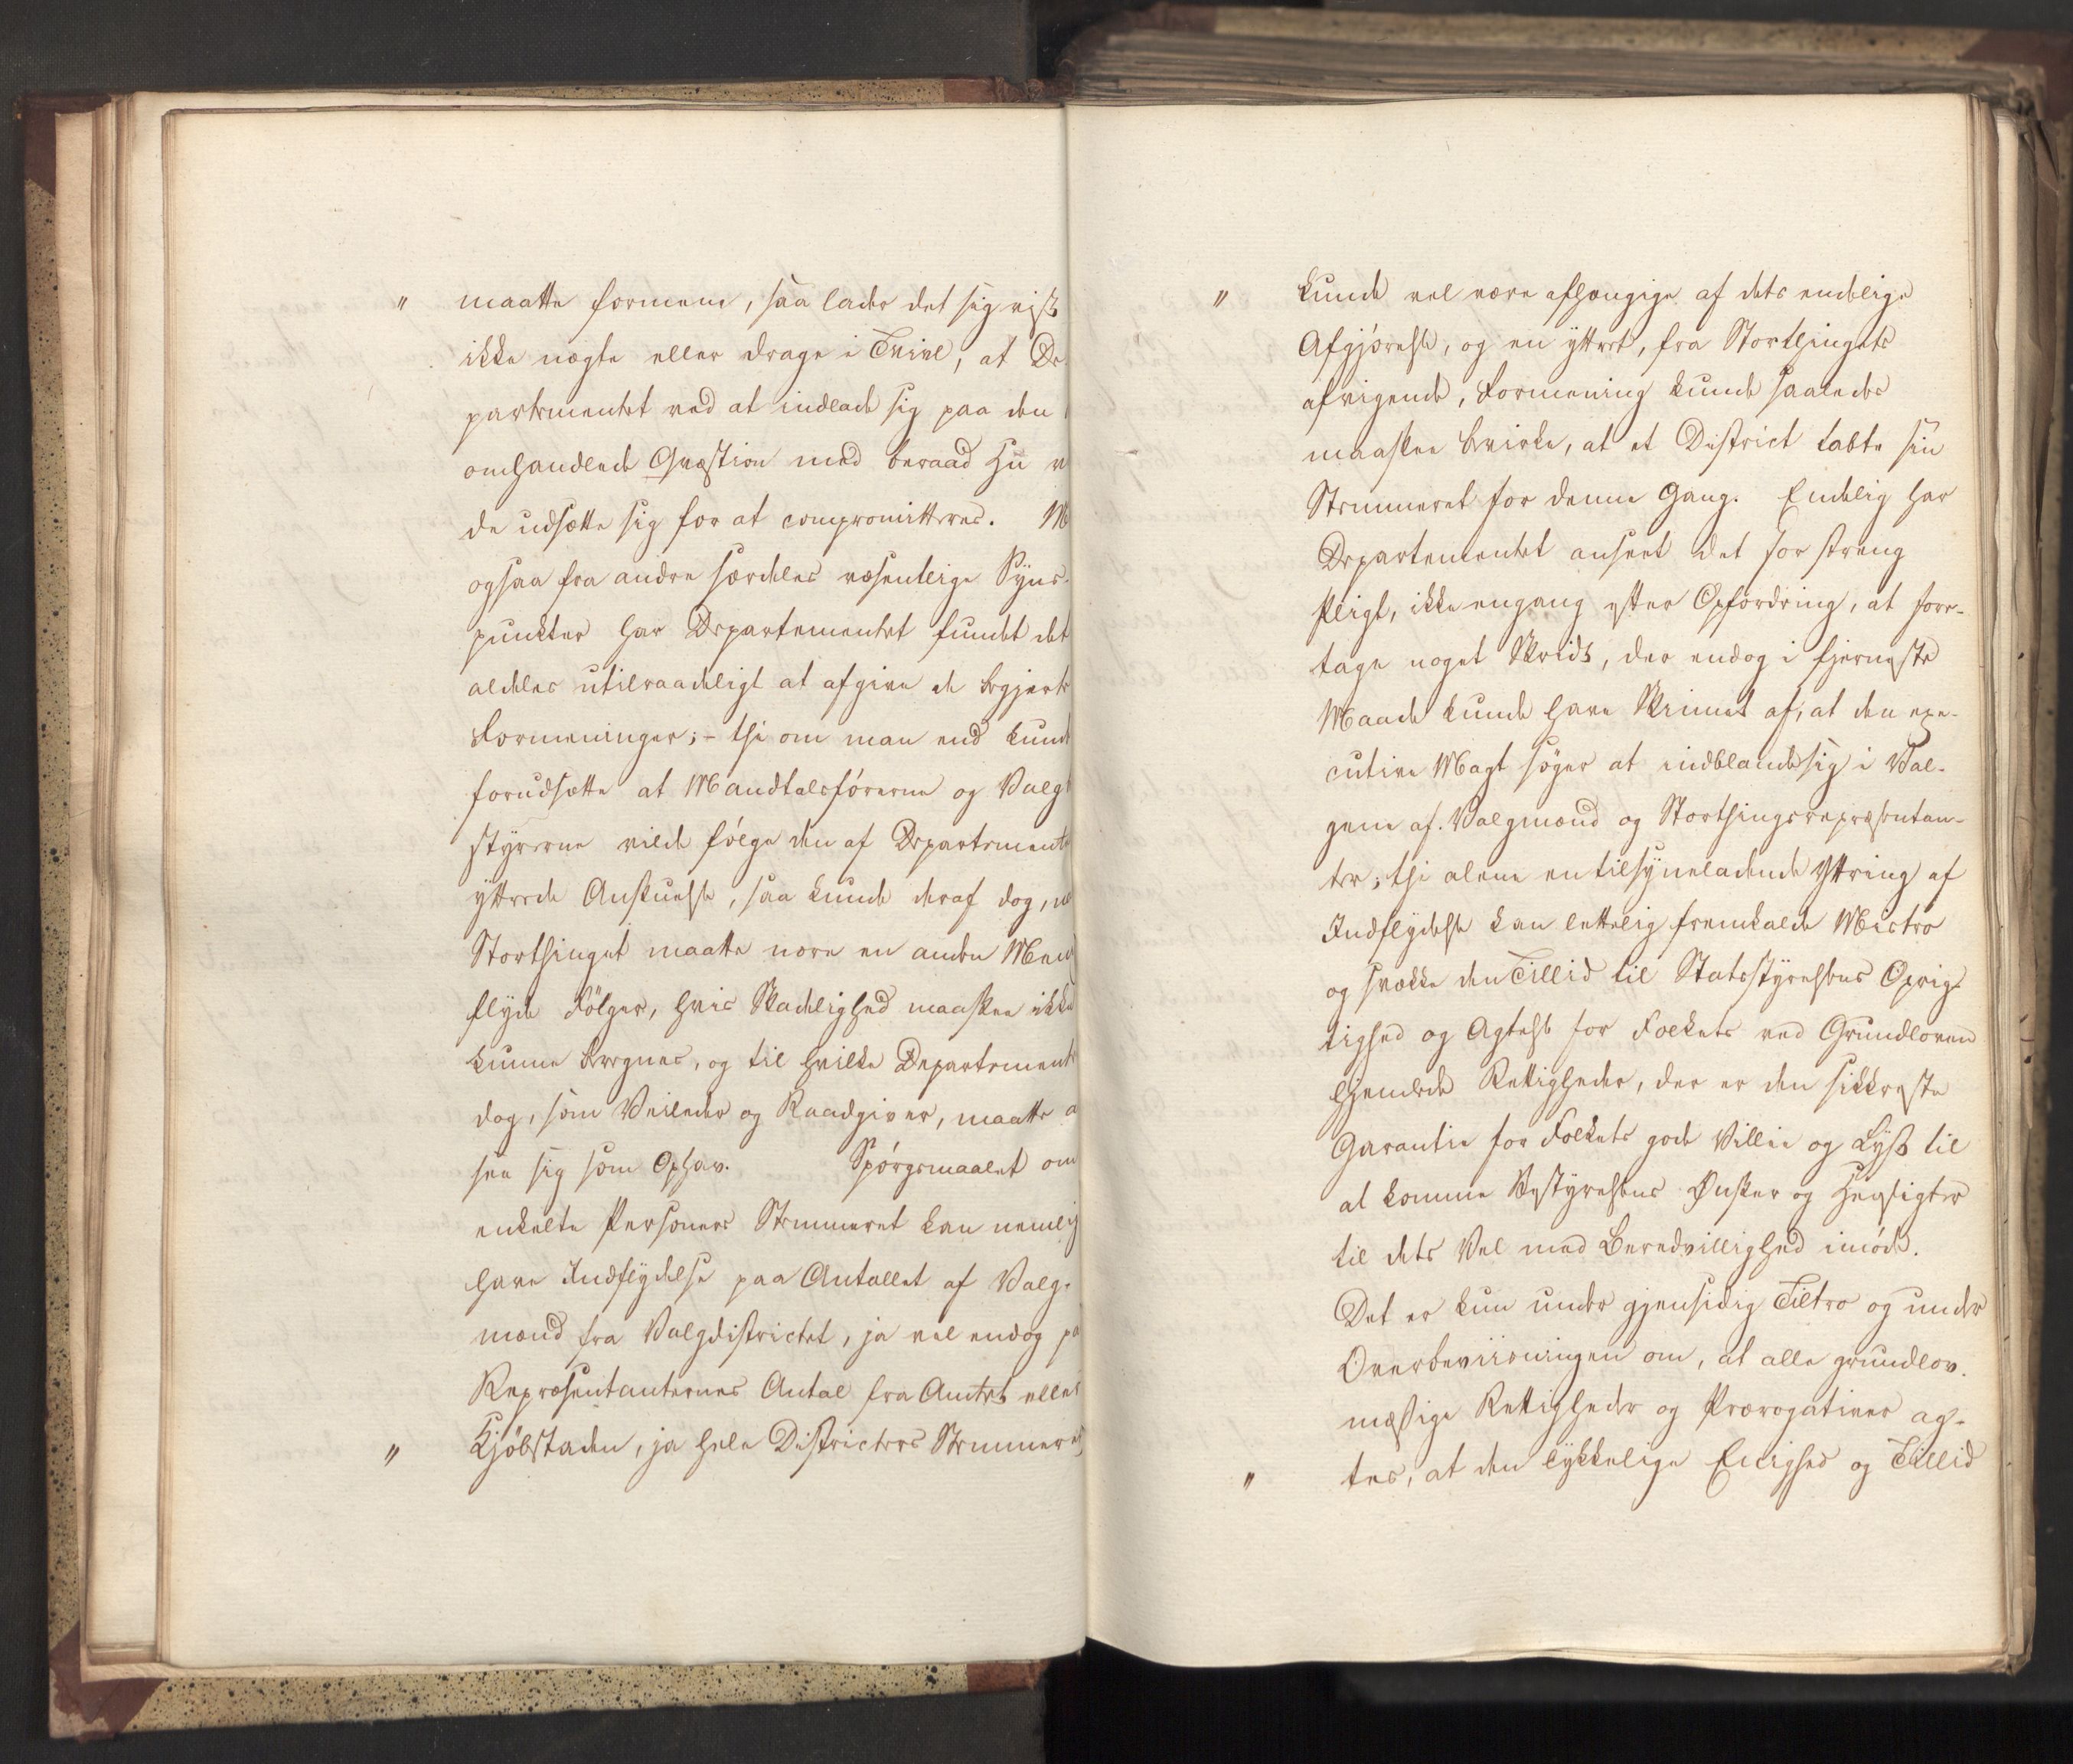 " maatte formene, saa lader det sig vist
ikke nægte eller drage i Tvivl, at De-
partementet ved at indlade sig paa den
omhandlede Qvæstion med beraad Hu v
de udsætte sig for at compromitteres. M
ogsaa fra andre særdeles væsentlige Syns-
punkter har Departementet fundet det
aldeles utilraadeligt at afgive de begjerte
Formeninger; - thi om man end kunde
forudsætte at Mandtalsförerne og Valg
styrerne vilde fölge den af Departemente
yttrede Anskuelse, saa kunde deraf dog, n
Storthinget maatte være en anden Men
flyde Fölger, hvis Skadelighed maaskee ikke
kunne beregnes, og til hvilke Departement
dog, som Veileder og Raadgiver, maatte a
see sig som Ophav. Spörgsmaalet om
enkelte Personers Stemmeret kan nemlig
have Indflydelse paa Antallet af Valg-
mænd fra Valgdistrictet, ja vel endog pa
Repræsentanternes Antal fra Amtet eller
" Kjöbstaden, ja hele Districters Stemmeret
" kunde vel være afhængige af dets endelige
Afgjörelse, og en yttret, fra Storthingets
afvigende, Formening kunde saaledes
maaskee bevirke, at et District tabte sin
Stemmeret for denne Gang. Endelig har
Departementet anseet det for streng
Pligt, ikke engang efter Opfordring, at fore-
tage noget Skridt, der endog i fjerneste
Maade kunde have Skinnet af, at den exe-
cutive Magt söger at indblande sig i Val-
gene af Valgmænd og Storthingsrepræsentan-
ter; thi alene en tilsyneladende Yttring af
Indflydelse kan lettelig fremkalde Mistro
og svække den Tillid til Statsstyrelsens Oprig-
tighed og Agtelse for Folkets ved Grundloven
hjemlede Rettigheder, der er den sikkreste
Garantie for Folkets gode Villie og Lyst til
at komme Bestyrelsens Ønsker og Hensigter
til dets Vel med Beredvillighed imöde.
Det er kun under gjensidig Tiltro og under
Overbeviisningen om, at alle grundlov-
mæssige Rettigheder og Prærogativer ag-
" tes, at den lykkelige Enighed og Tillid